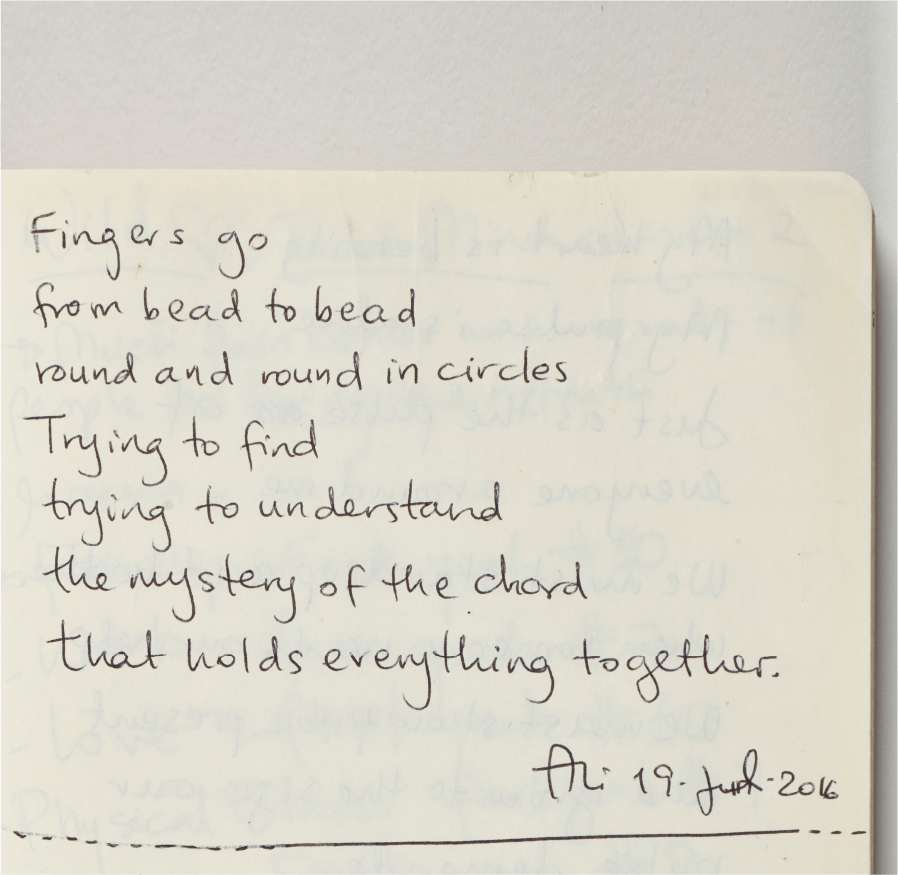 Fingers go
from bead to bead
round and round in circles
Trying to find
trying to understand
the mystery of the chord
that holds everything together.
Ali 19. 2016